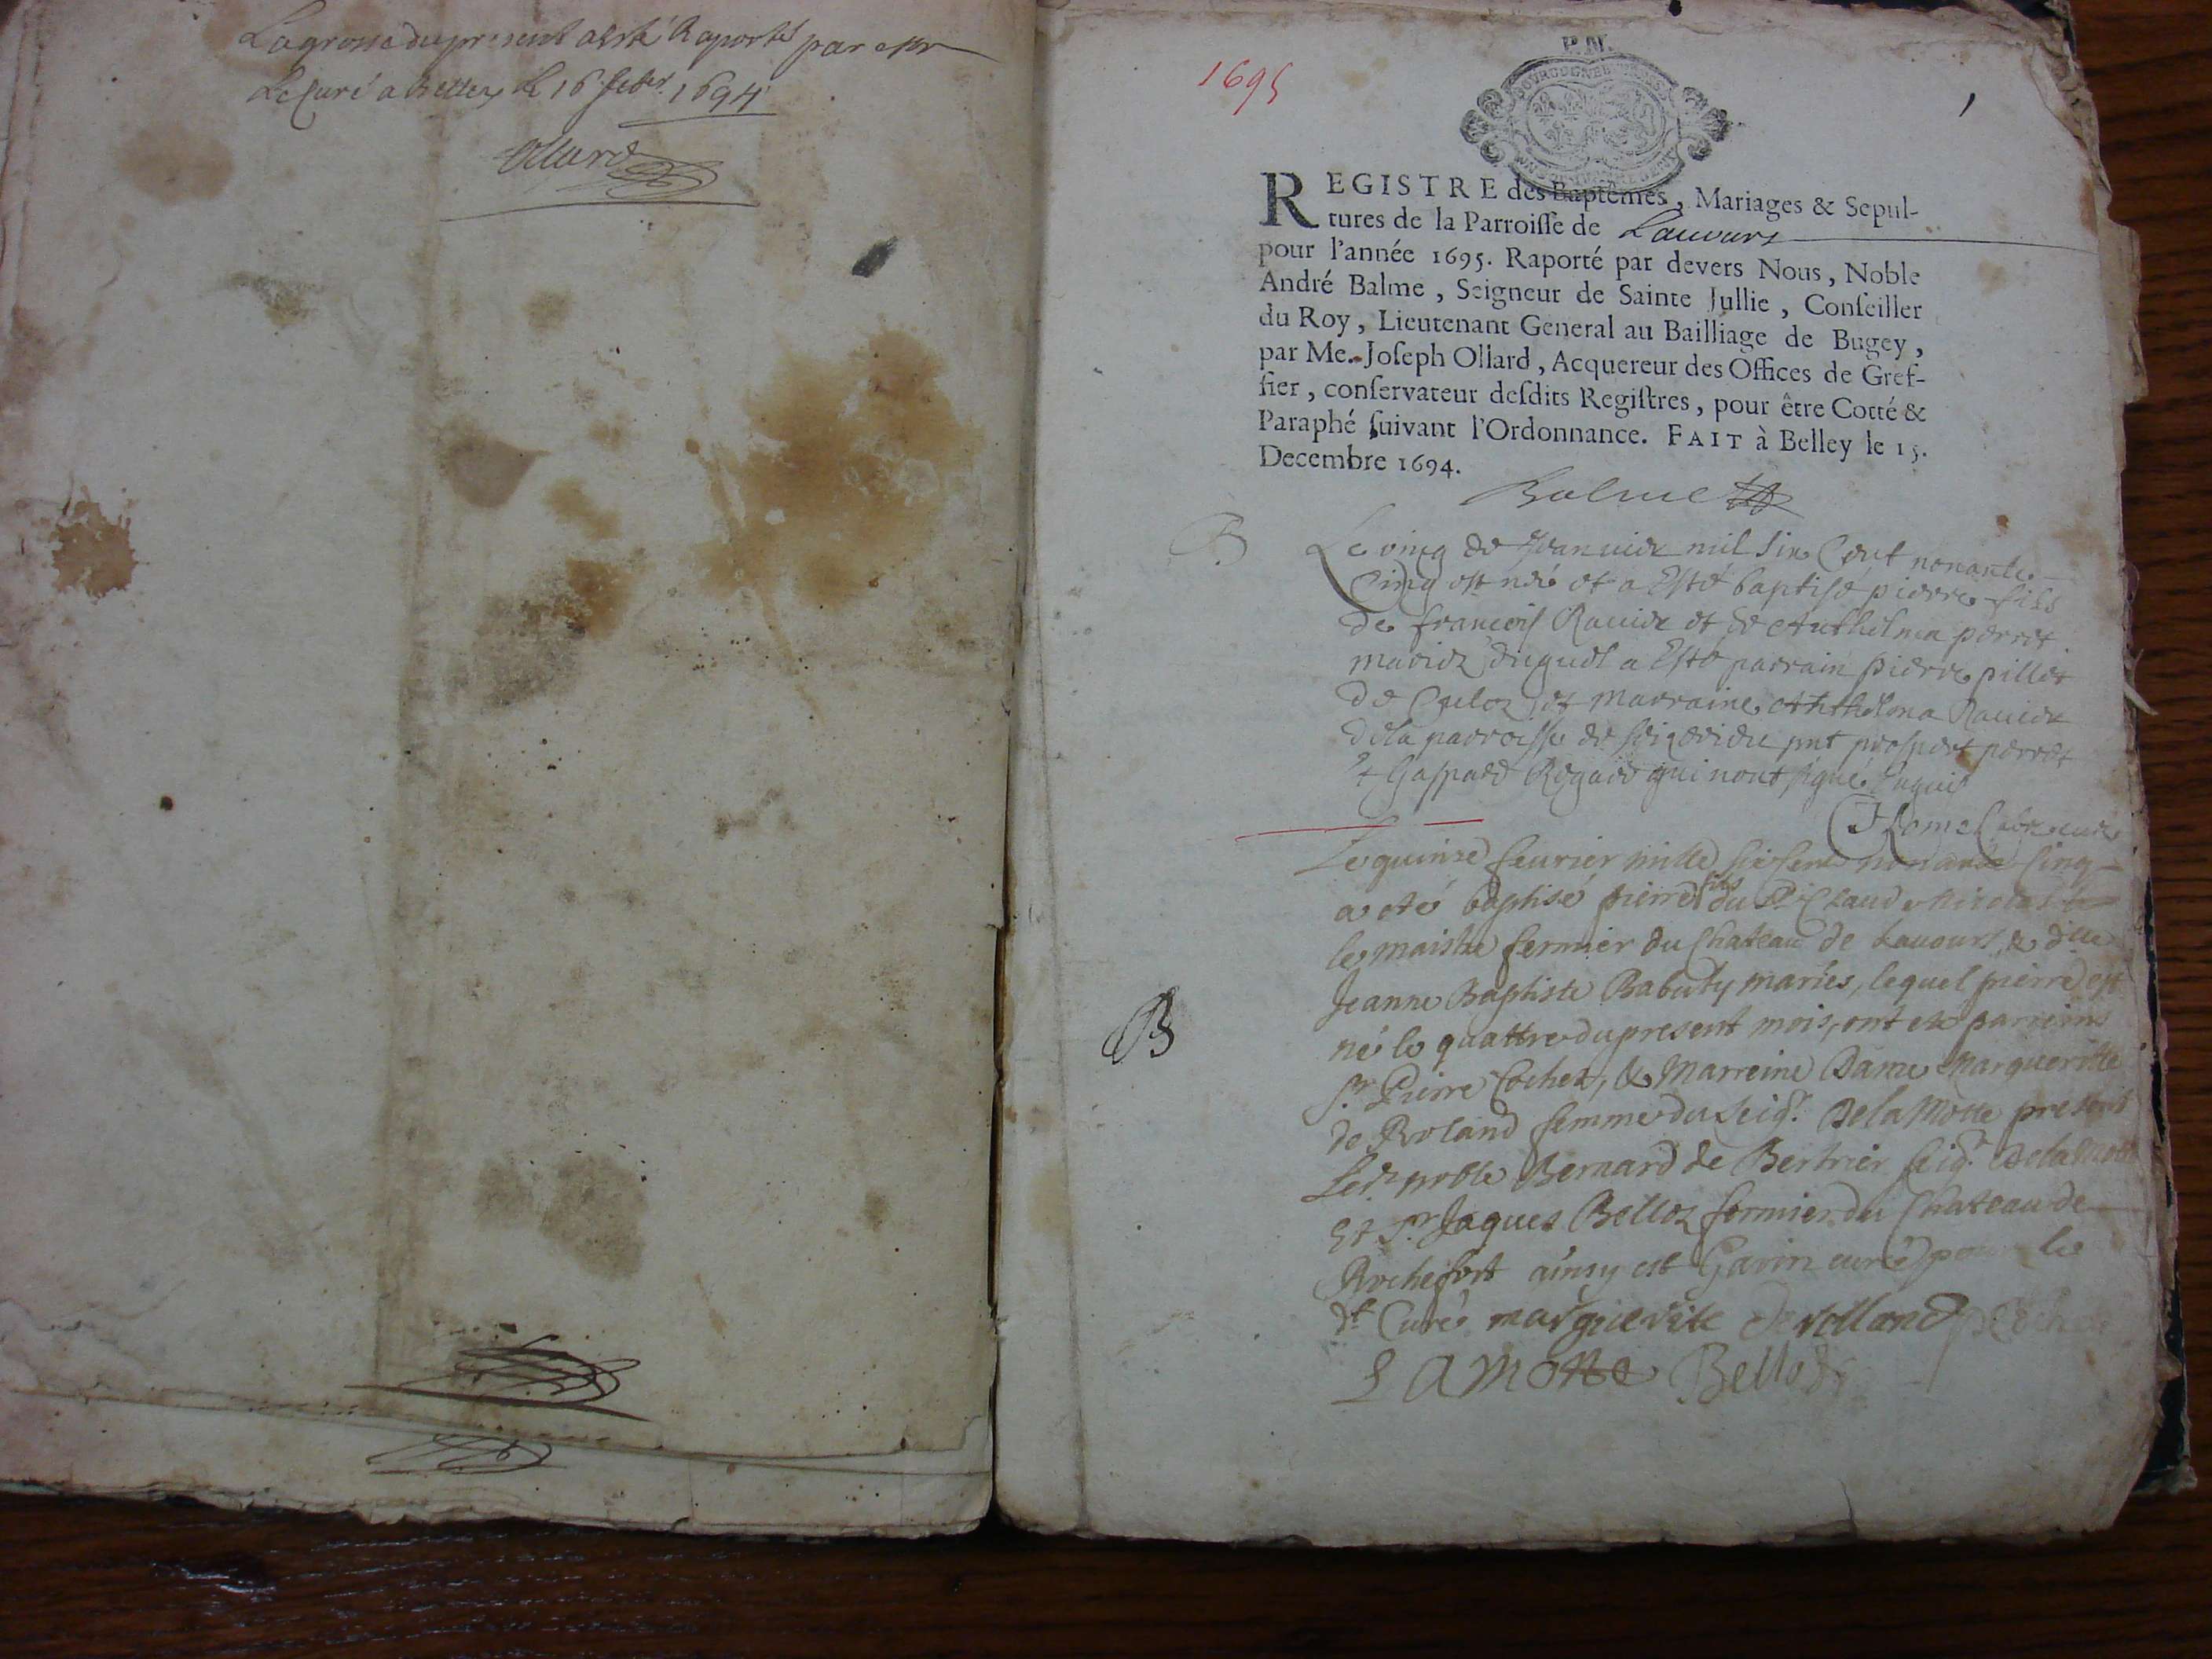 La grosse du present a esté Raportée par Mr
Le Curé a Belley le 16 febr. 1694
Ollard
1695
P.N.
1
REGISTRE des Baptêmes, Mariages & Sepul-
tures de la Parroiſſe de Lavours
pour l'année 1695. Raporté par devers Nous, Noble
André Balme, Seigneur de Sainte Jullie, Conſeiller
du Roy, Lieutenant General au Bailliage de Bugey,
par Me. Joſeph Ollard, Acquereur des Offices de Gref-
fier, conſervateur deſdits Regiſtres, pour être Cotté &
Paraphé ſuivant l'Ordonnance. FAIT à Belley le 15.
Decembre 1694.
Balme
B
Le cinq de Januier mil six Cent nonante
Cinq est né et a Esté baptisé pierre fils
de francois Rauier et de Anthelma perret
mariez duquel a Esté parrain pierre pillot
de Culoz et marraine Anthelma Rauier
de la parroisse de pnt prospert perret
et Gaspard qui nont signé
Le quinze feurier mille six cent nonante cinq
a eté baptisé pierre fils du Sr Claude Nicolas
le maistre fermier du Chateau de Lauours, & dlle
Jeanne Baptiste Babuty mariés, lequel pierre est
B
né le quattre du present mois, ont eté parreins
Sr. Pierre Cochet, & Marreine Dame Marguerite
de Roland femme du Seigr. De la Motte presents
Ledt. noble Bernard de Bertrier Seigr. De la Motte
Et Sr. Jaques Belloz fermier du Chateau de
Rochefort ainsy est Gavin curé pour le
dt Curé marguerite de rolland
LAMotte Belloz